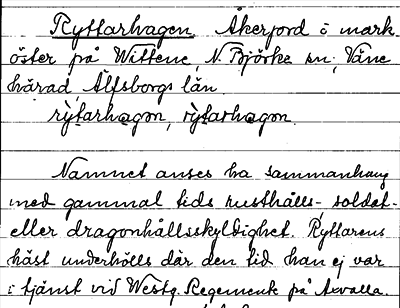 Ryttarhagen, Åkerjord i mark
öster på Wittene, N. Björke sn, Väne
härad, Älfsborgs län.
rytarhagen, rytarhagen.
Namnet anses ha sammanhang
med gammal tids rusthålls-soldat-
eller dragonhållsskyldighet. Ryttarens
häst underhölls där den tid han ej var
i tjänst vid Westg. Regemente på Axvalla.